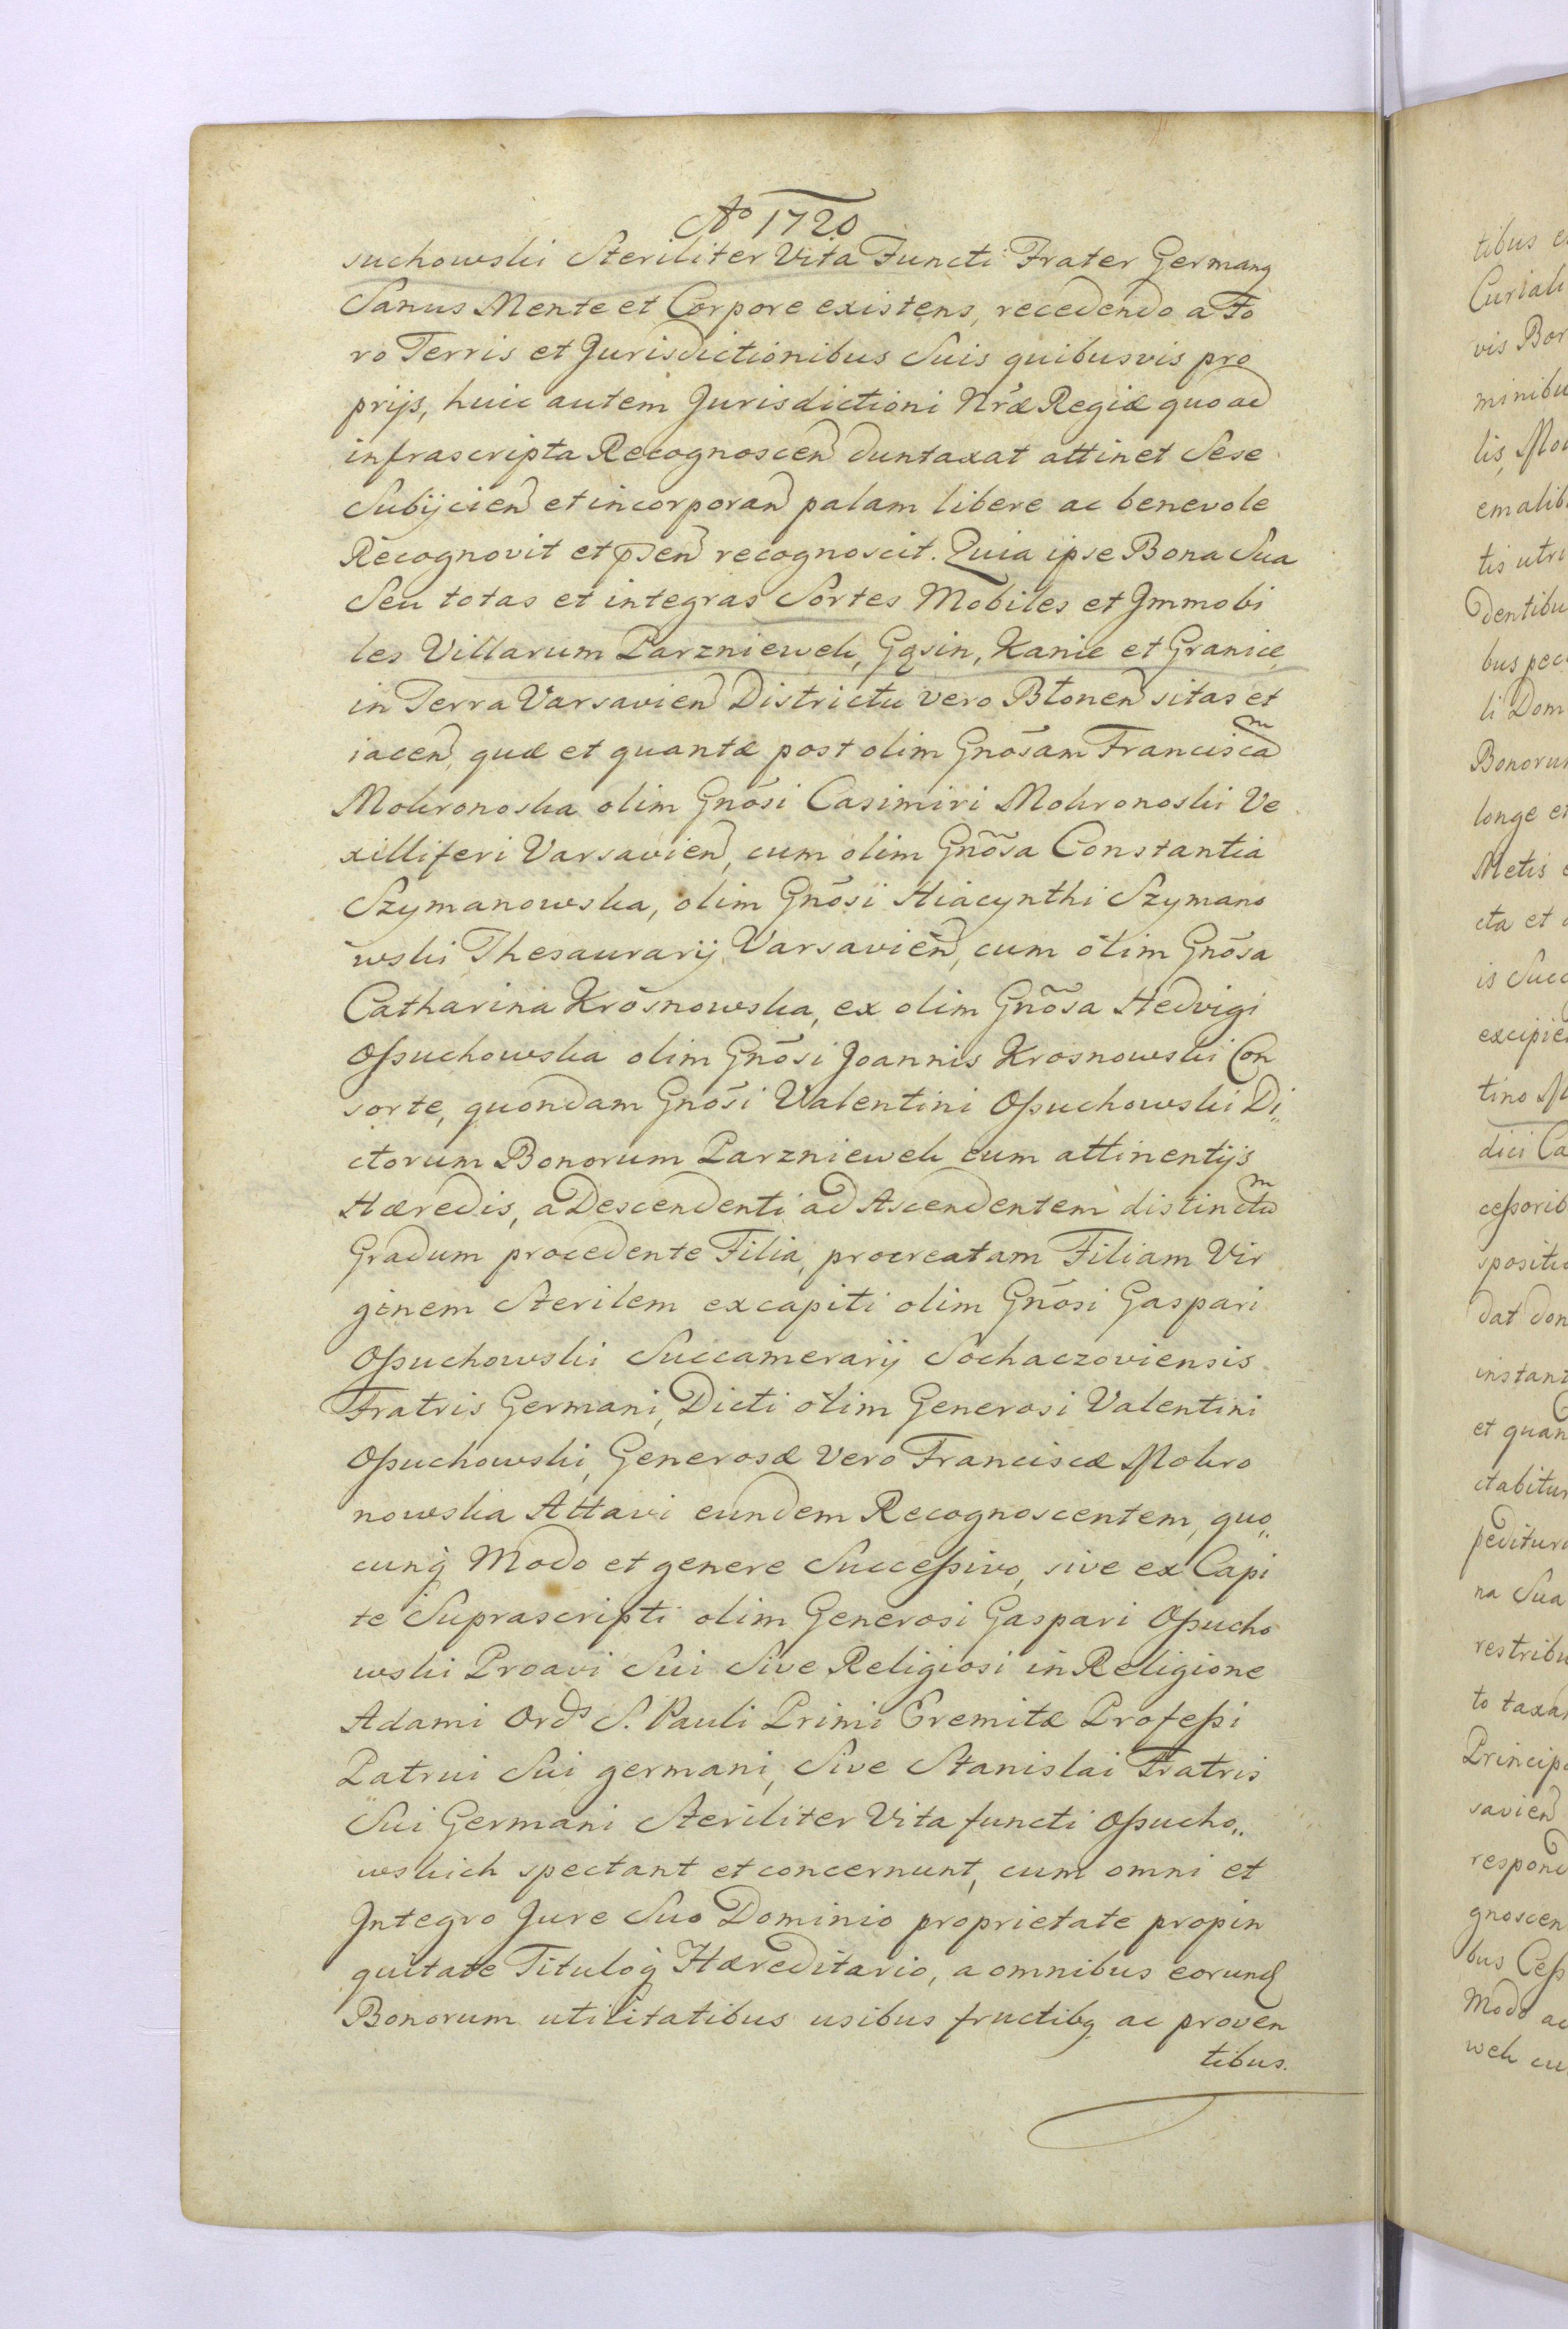 Aº 1720
suchowski Steriliter Vita Functi Frater Germanq
Sanus Mente et Corpore existens, recedendo a Fo
ro Terris et Jurisdictionibus Suis quibusvis pro
prijs, huic autem Jurisdictioni Nræ Regiæ quoad
infrascripta Recognoscen duntaxat attinet Sese
Subijcien et incorporan palam libere ac benevole
Recognovit et pñsen recognoscit. Quia ipse Bona Sua
Seu totas et integras Sortes Mobiles et Immobi
les Villarum Parzniewek, Gąsin, Kanie et Granice
in Terra Varsavien Districtu vero Błonen sitas et
iacen, quæ et quantæ post olim Gnõsam Franciscam
Mokronoska olim Gnõsi Casimiri Mokronoski Ve
xilliferi Varsavien, cum olim Gnõsa Constantia
Szymanowska, olim Gnõsi Hiacynthi Szymano
wski Thesaurarij Varsavien, cum olim Gnõsa
Catharina Krosnowska, ex olim Gnõsa Hedvigi
Ossuchowska olim Gnõsi Joannis Krosnowski Con
sorte, quondam Gnõsi Valentini Ossuchowski Di„
ctorum Bonorum Parzniewek cum attinentijs
Hæredis, a Descendenti ad Ascendentem distinctum
Gradum procedente Filia, procreatam Filiam Vir
ginem Sterilem ex capiti olim Gnõsi Gaspari
Ossuchowski Succamerarij Sochaczoviensis
Fratris Germani, Dicti olim Generosi Valentini
Ossuchowski, Generosæ vero Franciscæ Mokro
nowska Attavi eundem Recognoscentem, quo„
cunq̃ Modo et genere Successivo, sive ex Capi
te Suprascripti olim Generosi Gaspari Ossucho
wski Proavi Sui Sive Religiosi in Religione
Adami Ords S. Pauli Primi Eremitæ Professi
Patrui Sui germani, Sive Stanislai Fratris
Sui Germani Steriliter Vita functi Ossucho„
wskich spectant et concernunt, cum omni et
Integro Jure Suo Dominio proprietate propin
quitate Tituloq̃ Hæreditario, a omnibus eorund
Bonorum utilitatibus usibus fructibq ac proven
tibus.
tibus
Curiali
vis Bor
minibu
lis, Mo
emalib
tis utri
dentibu
bus pec
li Dom
Bonorum
longe e
Metis
cta et
is Succ
excipie
tino
dici Ca
cessorib
spositi
dat don
instant
et quan
ctabitur
peditur
na Sua
restribu
to taxa
Princip
savien
respond
gnoscen
bus Cess
Modo ac
wek cu